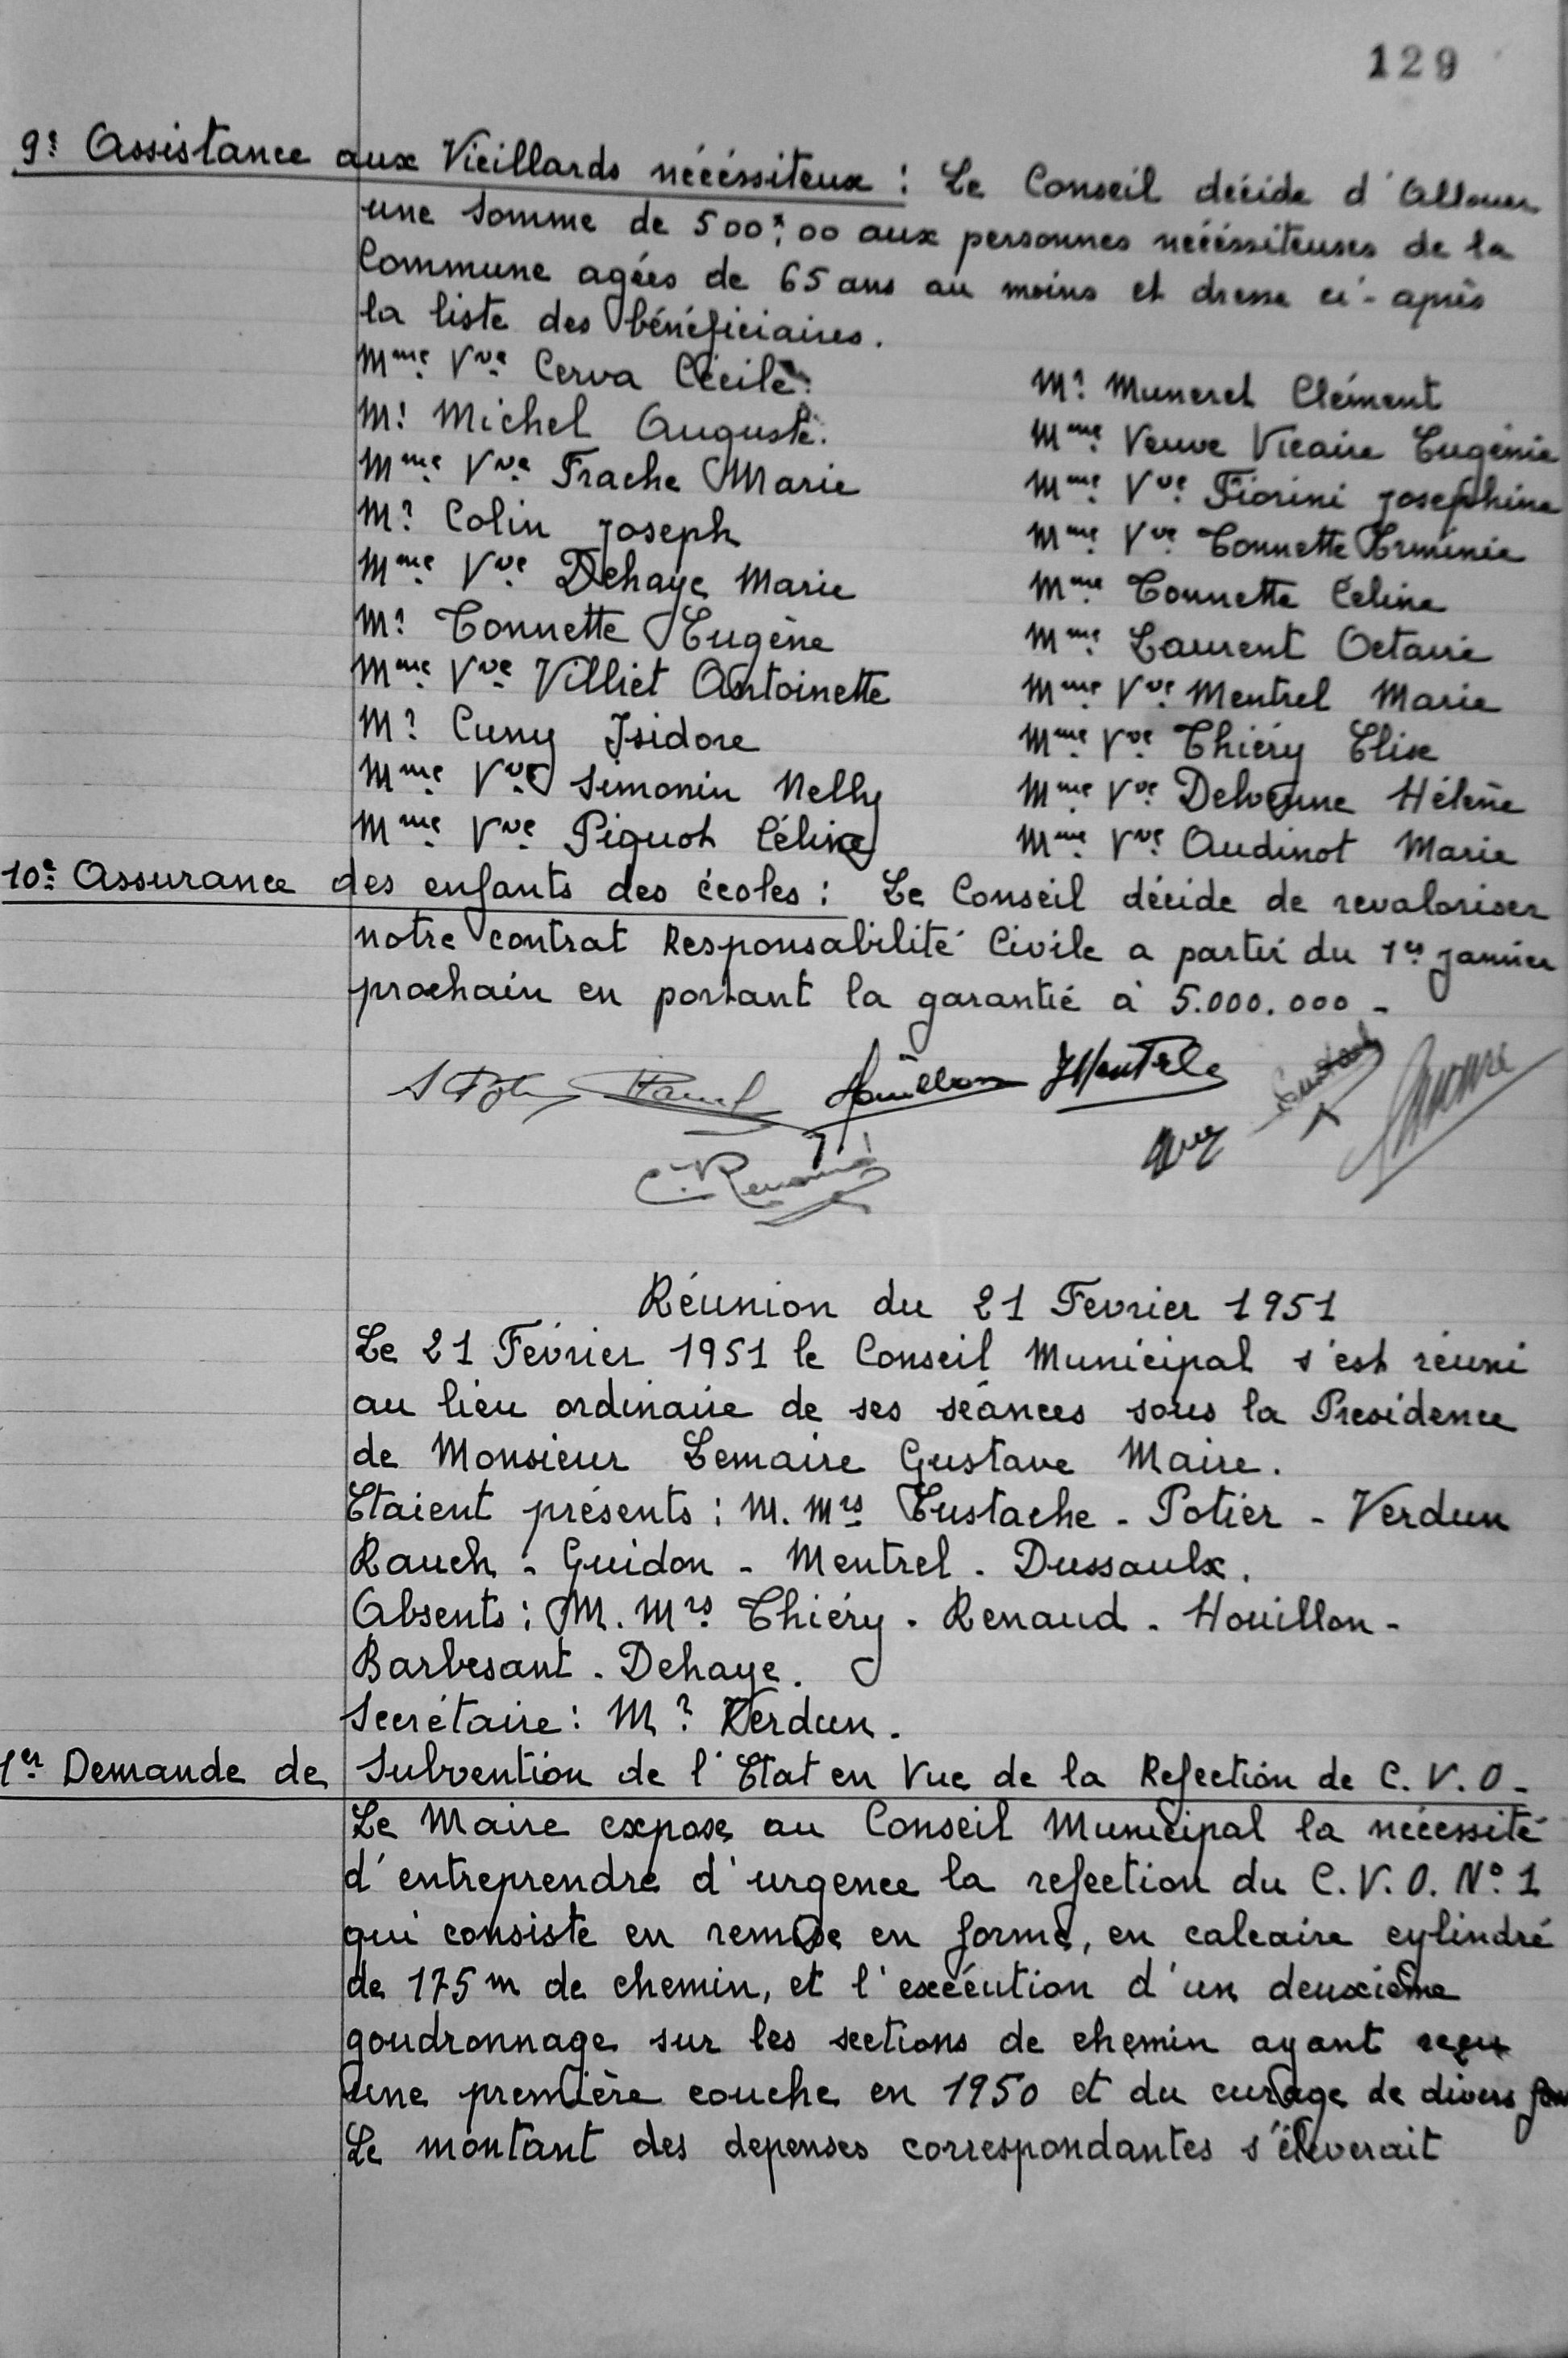 129
9e Assistance aux Vieillards nécéssiteux : Le Conseil décide d'Allouer
une somme de 500f,00 aux personnes nécéssiteuses de la
Commune agées de 65 ans au moins et dresse ci-après
la liste des bénéficiaires.
Mme Vve Cerva Cécile.
Mr Michel Auguste.
Mme Vve Frache Marie
Mr Colin Joseph
Mme Vve Dehaye Marie
Mr Tonnette Eugène
Mme Vve Villiet Antoinette
Mr Cuny Isidore
Mme Vve Simonin Nelly
Mme Vve Piquot Céline
Mr Munerel Clément
Mme Veuve Vicaire Eugénie
Mme Vve Fiorini Joséphine
Mme Vve Tonnette Erminie
Mme Tonnette Céline
Mme Laurent Octavie
Mme Vve Mentrel Marie
Mme Vve Thiéry Elise
Mme Vve Delvenne Hélène
Mme Vve Audinot Marie
10e Assurance des enfants des écoles : Le Conseil décide de revaloriser
notre contrat Responsabilité Civile a partir du 1er janvier
prochain en portant la garantie à 5.000.000 -
Houillon JMentrel
C. Renaud
Réunion du 21 Fevrier 1951
Le 21 Février 1951 le Conseil Municipal s'est réuni
au lieu ordinaire de ses séances sous la Presidence
de Monsieur Lemaire Gustave Maire.
Etaient présents : M. Mrs Eustache - Potier - Verdun
Rauch - Guidon - Mentrel - Dussaulx.
Absents : M. Mrs Thiéry - Renaud - Houillon -
Barbesant - Dehaye.
Secrétaire : Mr Verdun.
1er Demande de Subvention de l'Etat en Vue de la Refection de C.V.O -
Le Maire expose au Conseil Municipal la nécessité
d'entreprendre d'urgence la refection du C.V.O. N° 1
qui consiste en remise en forme, en calcaire cylindré
de 175 m de chemin, et l'exécution d'un deuxième
goudronnage sur les sections de chemin ayant reçu
une première couche en 1950 et du curage de divers
Le montant des depenses correspondantes s'élèverait